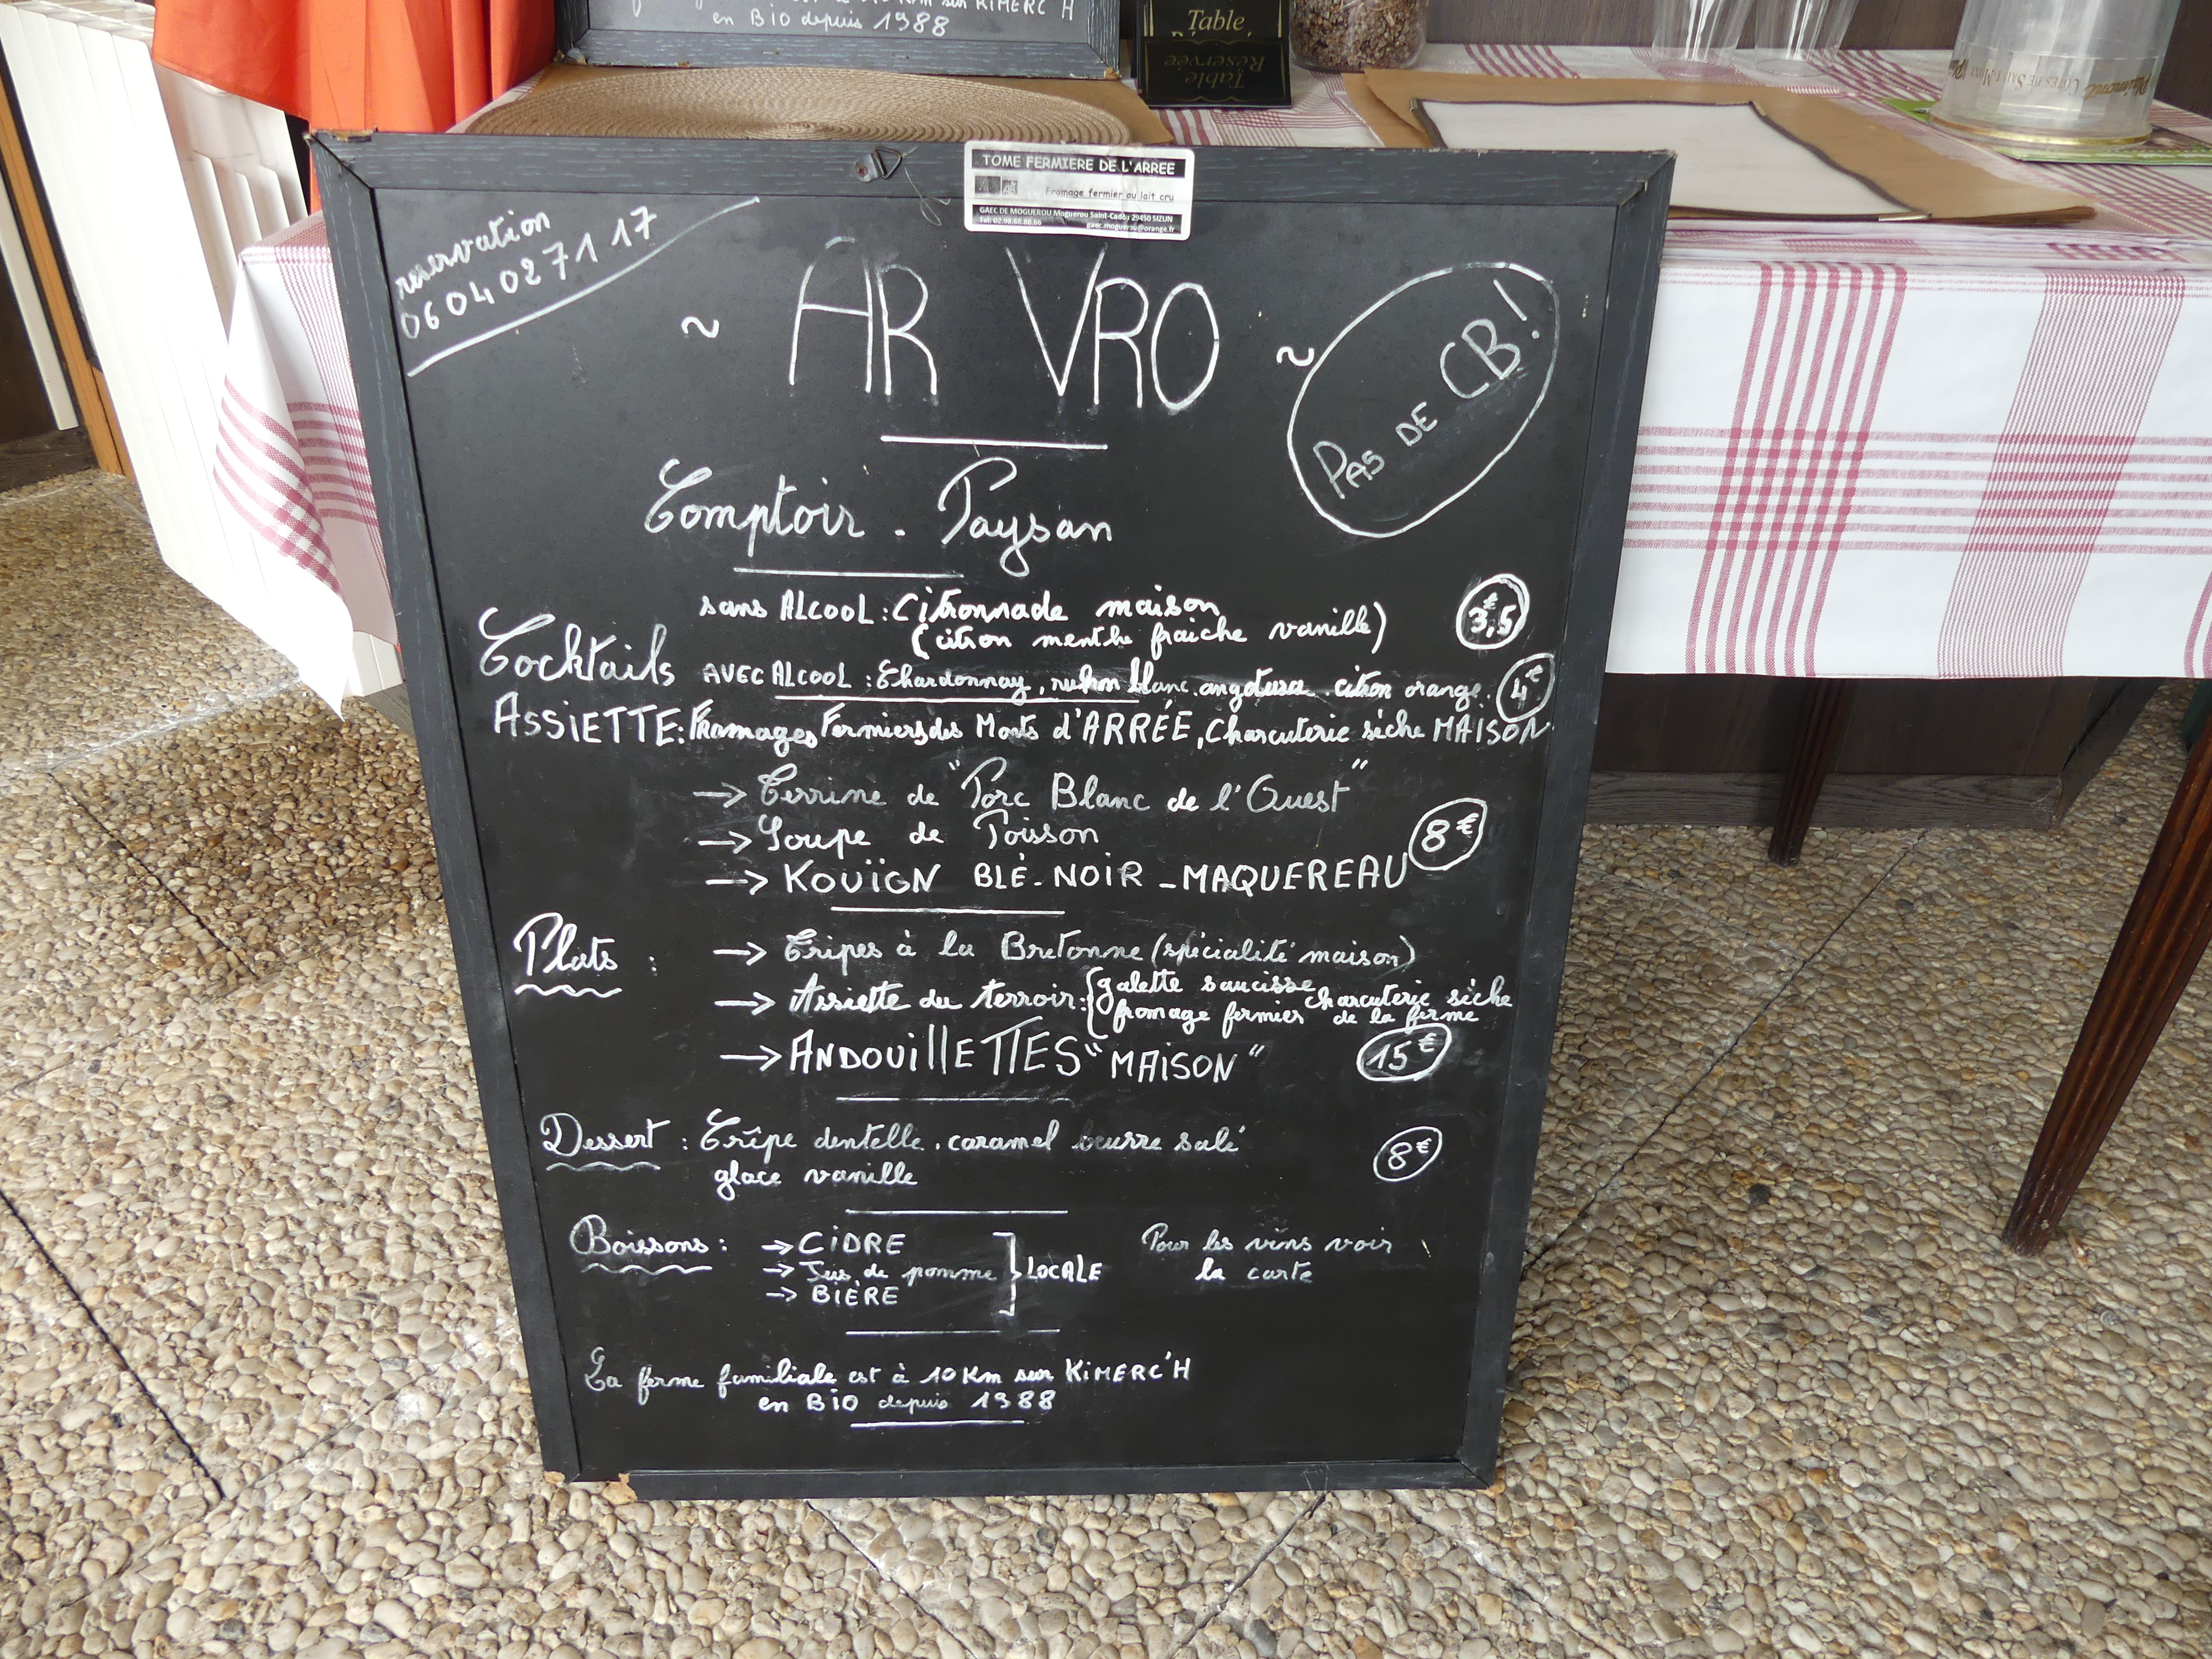 en BiO depuis 1988
Table
Table
Réservée
Plaimont CÔTES DE SAINT-MONT
TOME FERMIERE DE L'ARREE
Fromage fermier au lait cru
GAEC DE MOGUEROU Moguerou Saint-Cadou 29450 SIZUN
Tel: 02.98.68.88.66
gaec.moguerou@orange.fr
reservation
0604027117
~ AR VRO ~
PAS DE CB!
Comptoir - Paysan
sans ALCOOL: Citronnade maison
(citron menthe fraiche vanille)
3,5€
Cocktails
AVEC ALCOOL: Chardonnay, blanc. angotura. citron orange. 4€
ASSiETTE: Framages Fermiers des Monts d'ARRÉE, Charcuterie sèche MAISON
→ Terrine de "Porc Blanc de l'Ouest"
→ Soupe de Poisson
8€
→ KOUÏGN BLÉ-NOIR - MAQUEREAU
Plats :
→ Tripes à la Bretonne (spécialité maison)
→ Assiette du terroir: { galette saucisse charcuterie sèche
fromage fermier de la ferme
→ ANDOUillETTES "MAISON" 15€
Dessert : Crêpe dentelle. caramel beurre salé
glace vanille
8€
Boissons :
→ CiDRE
→ Jus de pomme
→ BIÈRE
LOCALE
Pour les vins voir
la carte
La ferme familiale est à 10 Km sur KiMERC'H
en BiO depuis 1988